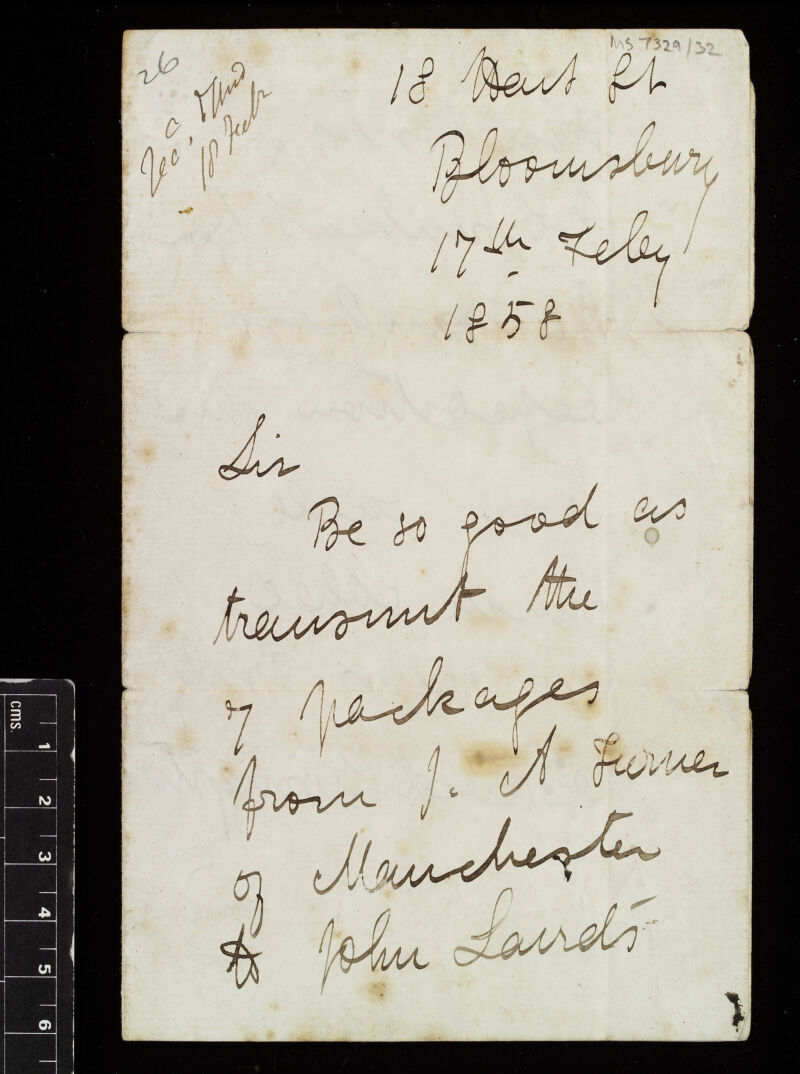 MS 7329/32
26
18 Feb
18 Hart St
Bloomsbury
17th Feby
1858
Sir
Be so good as
transmit the
7 packages
from J. A Turner
of Manchester
to John Laird's
cms.
1
2
3
4
5
6